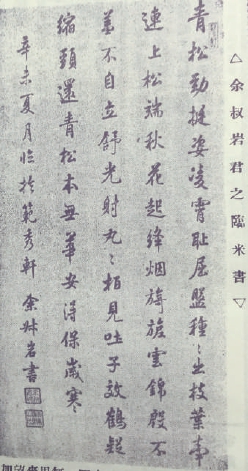 △余叔岩君之臨米書▽
青松勁挺姿凌霄恥屈盤種〻出枝葉牽
連上松端秋花起絳烟旖旎雲錦殷不
羞不自立舒光射丸〻柏見吐子效鶴疑
縮頸還青松本無華安得保歲寒
辛未夏月臨於範秀軒 余叔岩書